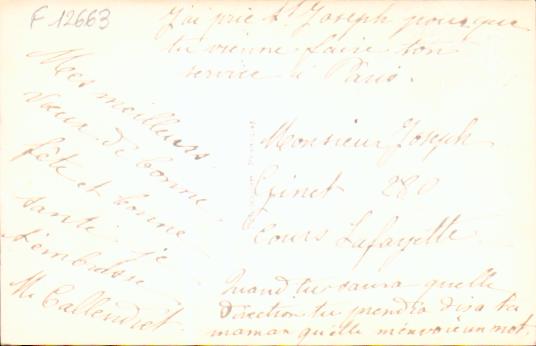 F 12663
J'ai prié St Joseph pour que
tu vienne faire ton
service à Paris.
Mes meilleurs
vœux de bonne
fête et bonne
santé je
t'embrasse
M. Callendret
Monsieur Joseph
Ginet 280
Cours Lafayette
Quand tu saura quelle
direction tu prendra dis a ta
maman qu'elle m'envoie un mot.